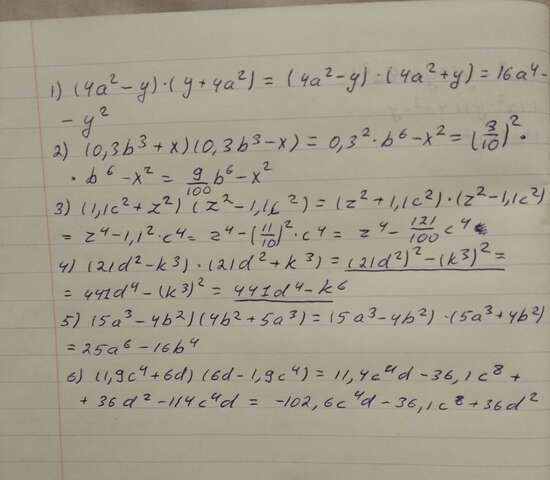 1) (4a² - y) · (y + 4a²) = (4a² - y) · (4a² + y) = 16a⁴ -
- y²
2) (0,3b³ + x)(0,3b³ - x) = 0,3² · b⁶ - x² = (3/10)² ·
· b⁶ - x² = 9/100 b⁶ - x²
3) (1,1c² + z²)(z² - 1,1c²) = (z² + 1,1c²) · (z² - 1,1c²)
= z⁴ - 1,1² · c⁴ = z⁴ - (11/10)² · c⁴ = z⁴ - 121/100 c⁴
4) (21d² - k³) · (21d² + k³) = (21d²)² - (k³)² =
= 441d⁴ - (k³)² = 441d⁴ - k⁶
5) (5a³ - 4b²)(4b² + 5a³) = (5a³ - 4b²) · (5a³ + 4b²)
= 25a⁶ - 16b⁴
6) (1,9c⁴ + 6d)(6d - 1,9c⁴) = 11,4c⁴d - 36,1c⁸ +
+ 36d² - 114c⁴d = -102,6c⁴d - 36,1c⁸ + 36d²